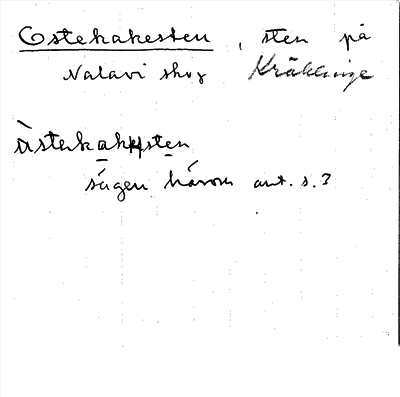 Ostekakesten, sten på
Nalavi skog Kräklinge
ὰstekakSsten
sägen härom ant. s. 3